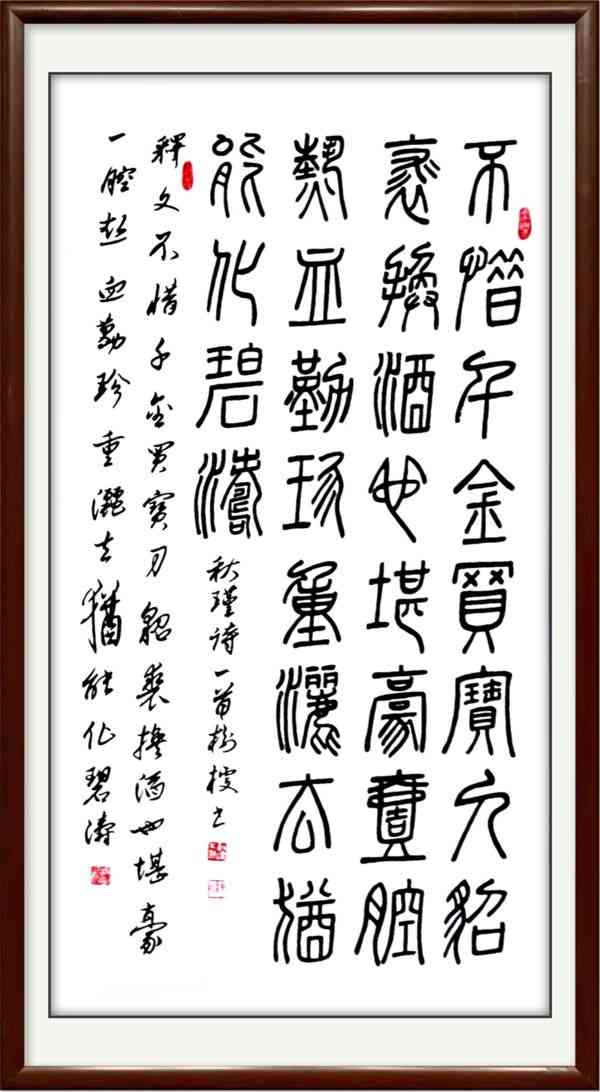 不惜千金買寶刀貂
裘換酒也堪豪壹腔
熱血勤珍重灑去猶
能化碧濤
秋瑾诗一首树书
釋文不惜千金買寶刀貂裘換酒也堪豪
一腔热血勤珍重灑去猶能化碧濤